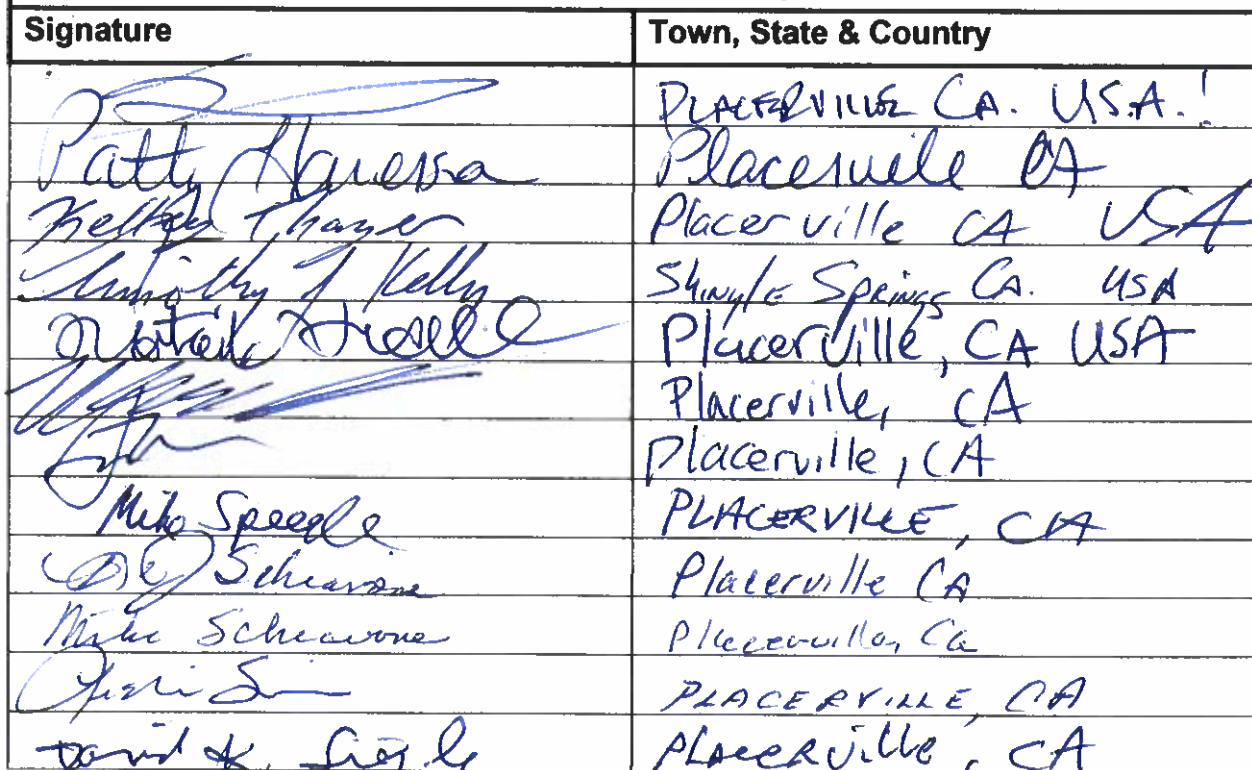 Signature Town, State & Country
PLACERVILLE CA. U.S.A.!
Patty Placerville CA
Kelley Thayer Placerville CA USA
Timothy J Kelly Shingle Springs Ca. USA
Placerville, CA USA
Placerville, CA
Placerville, CA
Mike Speegle PLACERVILLE, CA
Schiavone Placerville CA
Mike Schiavone Placerville, Ca
PLACERVILLE, CA
David K. Placerville, CA